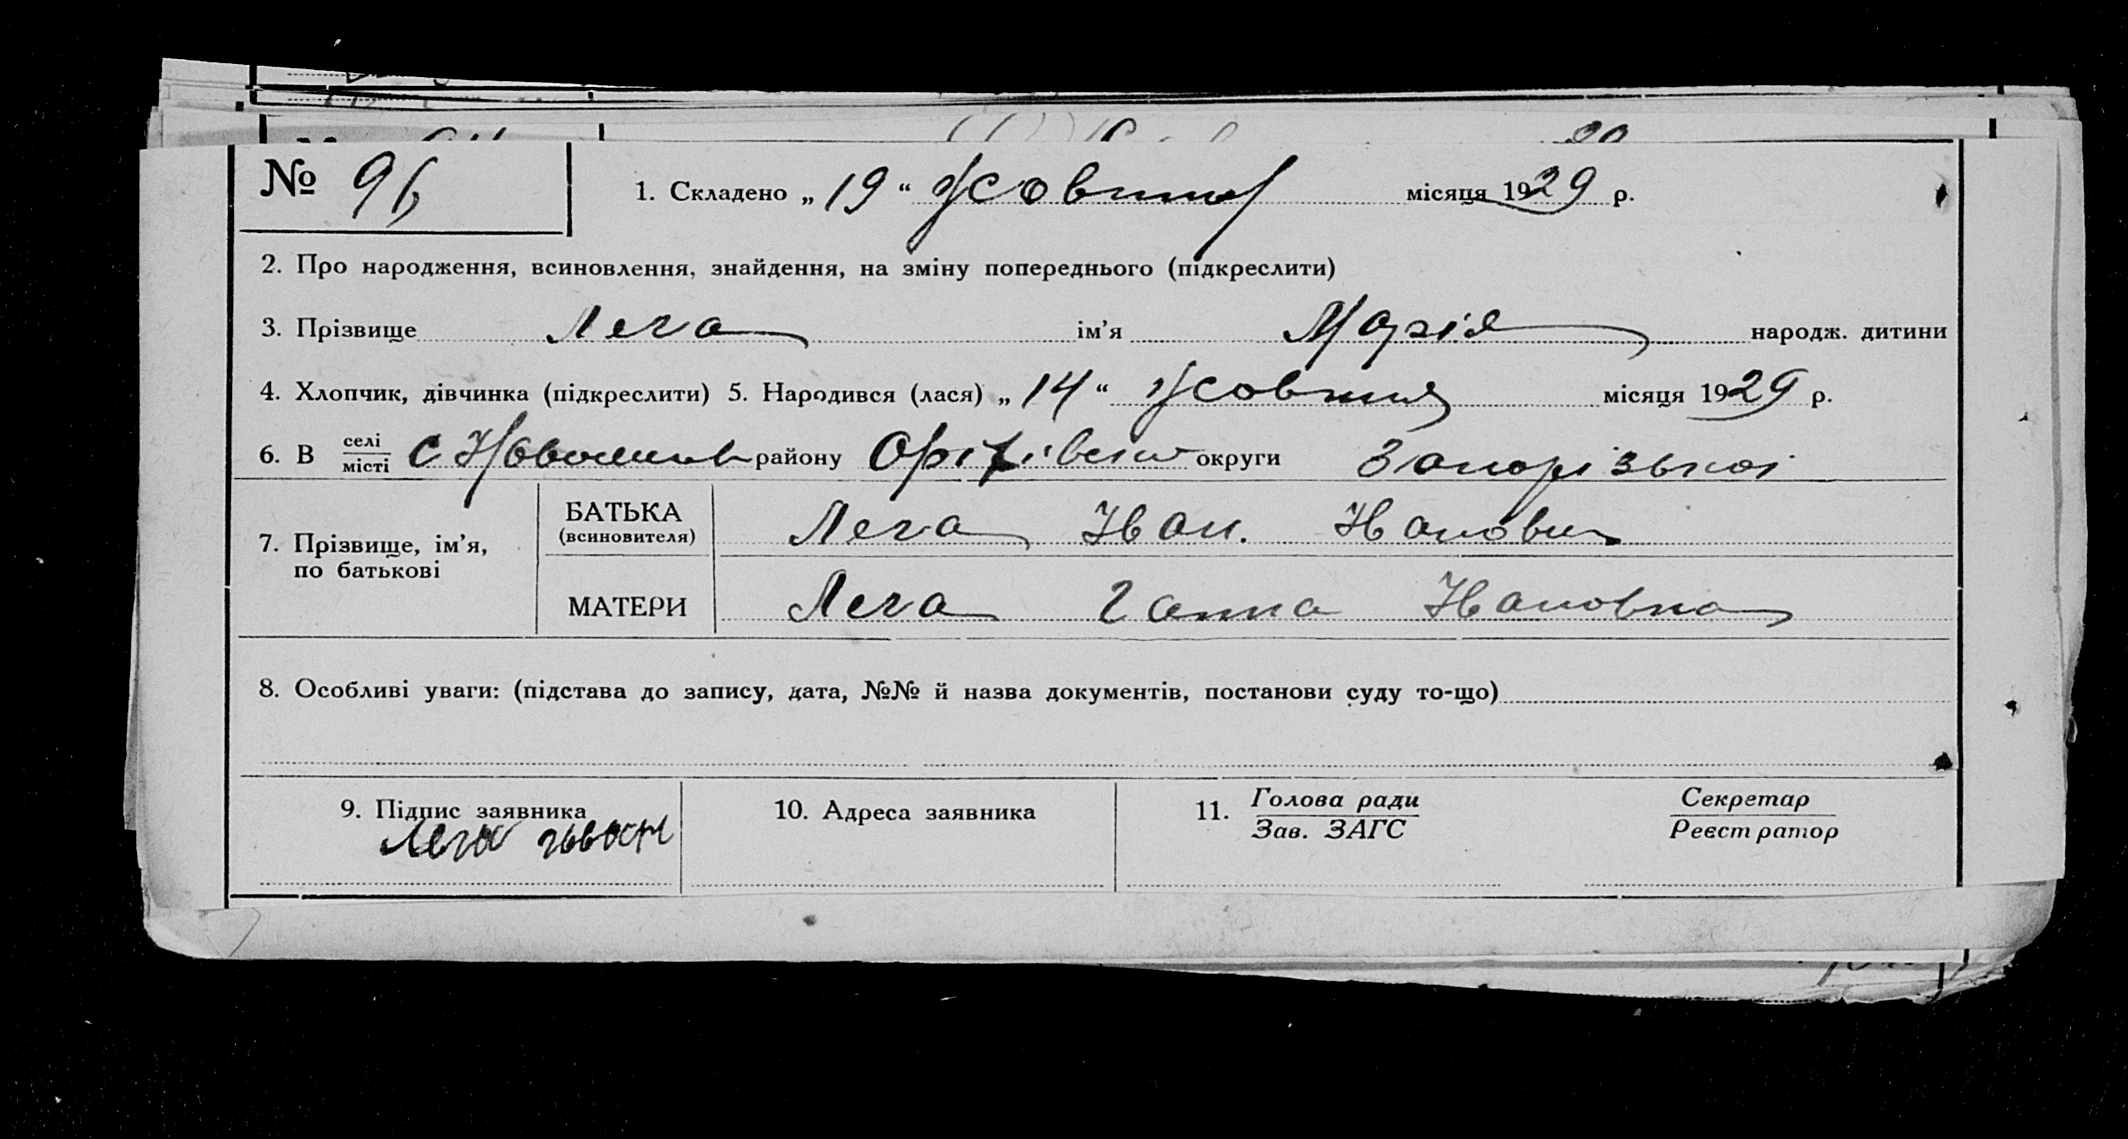 № 96
1. Складено „ 19 “ Жовтня місяця 1929 р.
2. Про народження, всиновлення, знайдення, на зміну попереднього (підкреслити)
3. Прізвище Лега ім’я Марія народж. дитини
4. Хлопчик, дівчинка (підкреслити) 5. Народився (лася) „ 14 “ Жовтня місяця 1929 р.
6. В селі місті району Оріхівськ округи Запорізької
7. Прізвище, ім’я, по батькові
БАТЬКА (всиновителя) Лега Іван. Іванович
МАТЕРИ Лега Ганна Івановна
8. Особливі уваги: (підстава до запису, дата, №№ й назва документів, постанови суду то-що)
9. Підпис заявника
Лега
10. Адреса заявника
11. Голова ради
Зав. ЗАГС
Секретар
Реєстратор